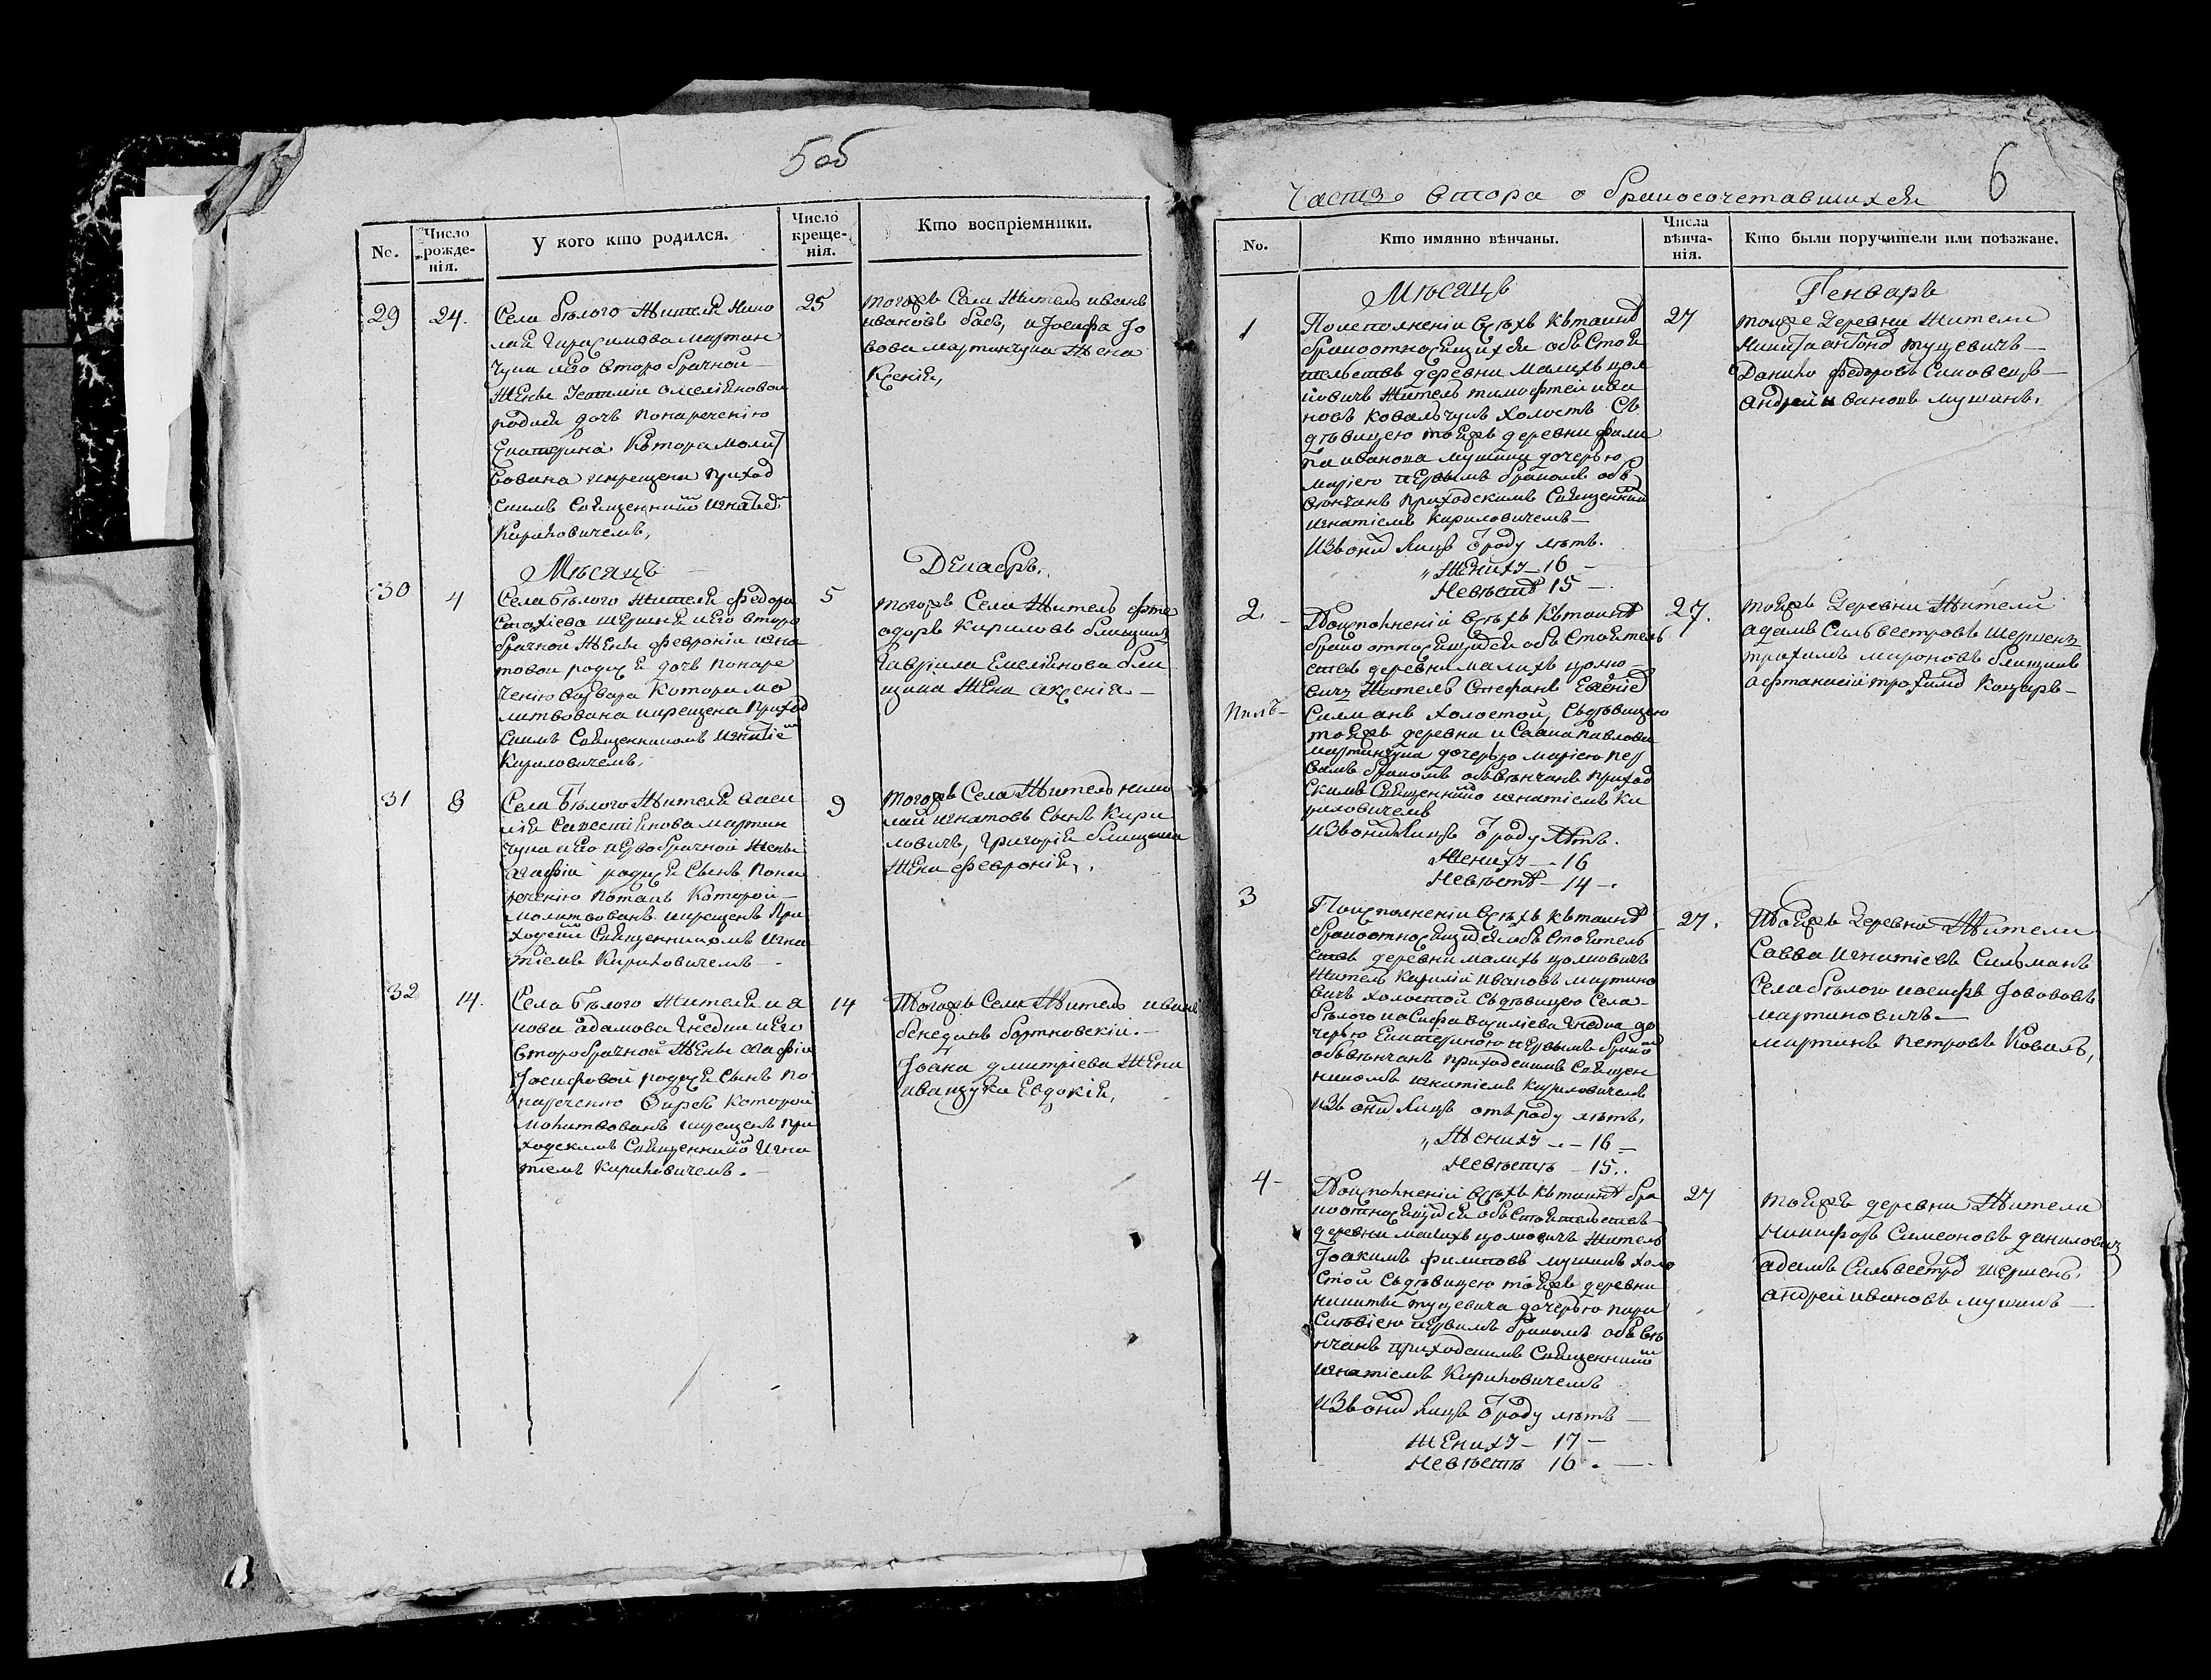 5 об
No.
Число рожде-нія.
У кого кто родился.
Число креще-нія.
Кто воспріемники.
29
24.
Села бѣлого жителя Нико
лая Гирасимова мартин
чука иего второбрачной
жены омеляновои
родися дочъ понаречению
Екатерина Котора молит
вована икрещена приход
скимъ Священником Игнатіем
Кириловичемъ,
25
тогожъ Села житель иванъ
ивановъ басъ, и Іосифа Іо
вова мартинчука жена
Ксенія,
Мѣсяцъ
Декабръ,
30
4
Села бѣлого жителя федора
шершня иего второ
брачной жены февроніи игна
товои родися дочъ понаре
ченію варвара Котора мо
литвована икрещена приход
скимъ Священникомъ Игнатіем
Кириловичемъ,
5
тогожъ Села житель фте
одоръ Кириловъ блищикъ
Гавріила Емелянова бли
щика жена аксенія
31
8
Села бѣлого жителя васи
лія Савестіянова мартин
чука иего первобрачной жены
агафіи родися Сынъ пона
речению потапъ Которой
молитвованъ икрещенъ при
ходским Священникомъ Игна
тіемъ Кириловичемъ
9
тогожъ Села житель нико
лай игнатовъ Сынъ Кири
ловичъ, Григорія блищика
жена февронія,
32
14.
Села бѣлого жителя и а
нова адамова гнедка иего
второбрачной жены агафіи
Іосифовой родися Сынъ по
наречению Фирсъ Которой
молитвованъ икрещенъ при
ходскимъ Священником Игна
тіемъ Кириловичемъ.
14
Тогожъ Села житель иванъ
бенедикъ бортновскій.
Іоана дмитріева жена
иванчука Евдокія,
6
Частъ втора о бракосочетавшихся
No.
Кто имянно вѣнчаны.
Числа вѣнча-нія.
Кто были поручители или поѣзжане.
Мѣсяцъ
Генваръ
1
Поисполненіи всѣхъ Ктаинѣ
бракоотносящихся обстоя
тельствъ деревни малихъ цол
ковичъ житель тимофтей ива
новъ Ковальчукъ холостъ Съ
дѣвицею тояжъ деревни фили
па иванова мушика дочерью
маріею первымъ бракомъ объ
вѣнчанъ приходскимъ Священником
игнатіемъ Кириловичемъ
Изъ оних лицъ Ѿроду лѣтъ.
Жениху 16
Невѣстѣ 15
27
тоеже деревни жители
Никита антонов туцевичъ
Данило федоровъ Сиковецъ
андрей ивановъ мушикъ,
2
Поисполненіи всѣхъ Ктаинѣ
брако относящихся обстоятель
ствъ деревни малихъ цолко
вичъ житель Стефанъ
Силманъ холостой, Съдѣвицею
тояжъ деревни и Савка павлова
мартинчука дочерью маріею пер
вимъ бракомъ объвѣнчанъ приход
скимъ Священником игнатіемъ Ки
риловичемъ
изъ оних лицъ Ѿроду лѣтъ.
Жениху 16
Невѣстѣ 14
27.
тояжъ деревни жители
адамъ Сильвестровъ шершенъ
трохимъ мироновъ блищикъ
афтанасій трохимов Коцаръ
3
Поисполненіи всѣхъ Ктаинѣ
бракоотносящихся обстоятель
ствъ деревни малихъ цолковичъ
житель Кирилій ивановъ мартино
вичъ холостой Съдѣвицею Села
бѣлого иосифа василіева гнедка до
черью Екатериною первымъ браком
объвѣнчанъ приходскимъ Священ
никомъ игнатіемъ Кириловичемъ
изъ оних лицъ отъроду лѣтъ,
Жениху 16
Невѣстъ 15.
27.
Тояжъ деревни жители
Савва игнатіевъ Сильманъ
Села бѣлого иосифъ Іововъ
мартиновичъ
мартинъ петровъ Ковалъ,
4
Поисполненіи всѣхъ Ктаинѣ бра
коотносящихся обстоятельствъ
деревни малихъ цолковичъ житель
Іоакимъ филиповъ мушикъ холо
стой Съдѣвицею тояжъ деревни
никиты туцевича дочерью пара
скевіею первимъ бракомъ объвѣ
нчанъ приходскимъ Священником
игнатіемъ Кириловичемъ
изъ оних лицъ Ѿроду лѣтъ
жениху 17
невѣстъ 16.
27
тояжъ деревни жители
никифоръ Симеоновъ даниловичъ
адамъ Сильвестров шершенъ,
андрей ивановъ мушикъ